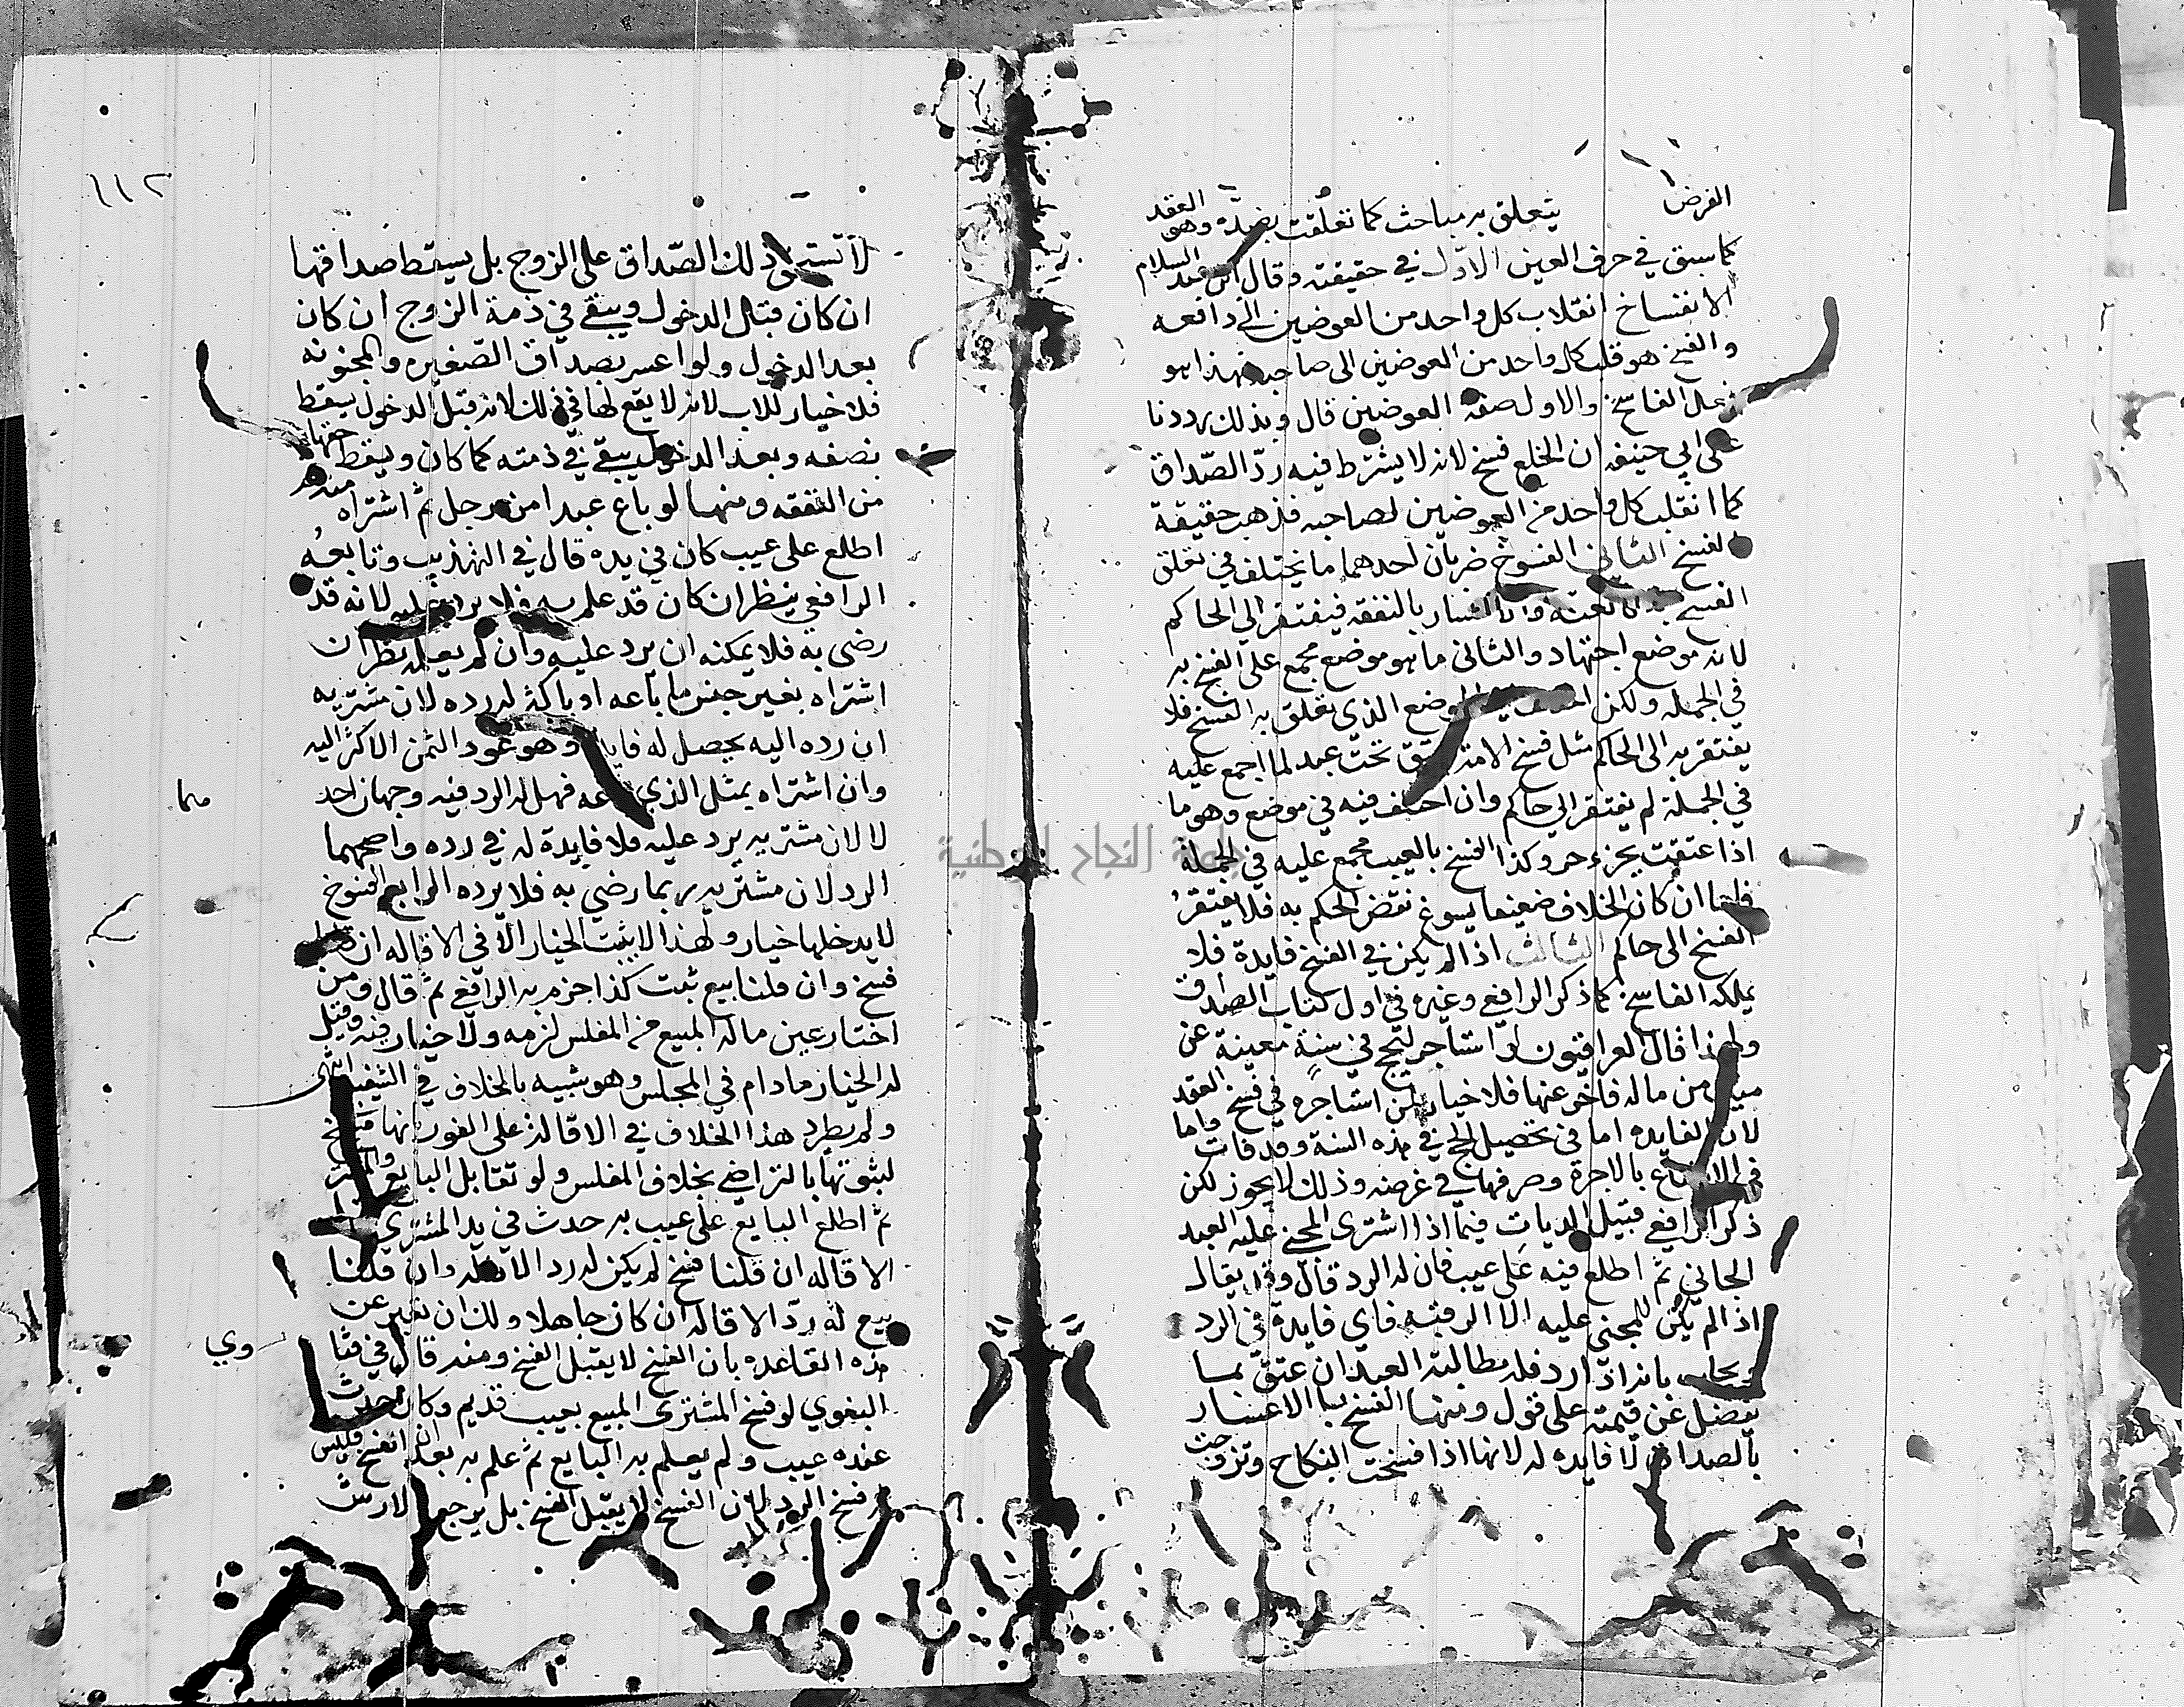 الفرض يتعلق به مباحث كما تعلقت بضده وهو العقد
كما سبق في حرف العين الاول في حقيقته وقال ابن عبد السلام
الانفساخ انقلاب كل واحد من العوضين الى دافعه
والفسخ هو قلب كل واحد من العوضين الى صاحبه فهذا هو
فعل الفاسخ والاول صفة العوضين قال وبذلك رددنا
على ابي حنيفه ان الخلع فسخ لانه لا يشترط فيه رد الصداق
كما انقلب كل واحد من العوضين لصاحبه فذهب حقيقة
الفسخ الثاني الفسوخ ضربان احدهما ما يختلف في تعلق
الفسخ به كالعنة والاعسار بالنفقه فيفتقر الى الحاكم
لانه موضع اجتهاد والثاني ما هو موضع مجمع على الفسخ به
في الجمله ولكن الموضع الذي تعلق به الفسخ فلا
يفتقر به الى الحاكم مثل فسخ الامة تعتق تحت عبد لما اجمع عليه
في الجملة لم يفتقر الى حاكم وان اختلف فيه في موضع وهو ما
اذا عتقت بجزء حر وكذا الفسخ بالعيب مجمع عليه في الجملة
ان كان الخلاف ضعيفا يسوغ نقض الحكم به فلا يفتقر
الفسخ الى حاكم الثالث اذا لم يكن في الفسخ فايدة فلا
يملكه الفاسخ كما ذكر الرافعي وغيره في اول كتاب الصداق
ولهذا قال العراقيون لو استاجر لحج في سنة معينة عن
ميت من ماله فاخر عنها فلا خيار لمن استاجره في فسخ العقد
لان الفايده اما في تحصيل الحج في هذه السنة وقد فات واما
في الانتفاع بالاجرة وصرفها في غرضه وذلك لا يجوز لكن
ذكر الرافعي قبيل الديات فيما اذا اشترى المجني عليه العبد
الجاني ثم اطلع فيه على عيب فان له الرد قال وقد يقال
اذا لم يكن للمجني عليه الا الرقبه فاي فايدة في الرد
ويجاب بانه اذا رد فله مطالبة العبد ان عتق بما
يفضل عن قيمته على قول ومنها الفسخ بالاعسار
بالصداق لا فايده له لانها اذا فسخت النكاح وتزوجت
١١٢
لا تستحق ذلك الصداق على الزوج بل يسقط صداقها
ان كان قبل الدخول ويبقى في ذمة الزوج ان كان
بعد الدخول ولو اعسر بصداق الصغيره والمجنونه
فلا خيار للاب لانه لا يقع لها في ذلك لانه قبل الدخول يسقط
نصفه وبعد الدخول يبقى في ذمته كما كان ويسقط حقها
من النفقه ومنها لو باع عبدا من رجل ثم اشتراه منه
اطلع على عيب كان في يده قال في التهذيب وتابعه
الرافعي ينظر ان كان قد علم به فلا يرد عليه لانه قد
رضي به فلا يمكنه ان يرد عليه وان لم يعلم نظر ان
اشتراه بغير جنس ما باعه او باكثر له رده لان مشتريه
ان رده اليه يحصل له فايدة وهو عود الثمن الاكثر اليه
وان اشتراه بمثل الذي باعه فهل له الرد فيه وجهان احدهما
لا لان مشتريه يرد عليه فلا فايدة له في رده واصحهما
الرد لان مشتريه ربما رضي به فلا يرده الرابع الفسوخ
لا يدخلها خيار ولهذا لا يثبت الخيار الا في الاقاله ان قلنا
فسخ وان قلنا بيع ثبت كذا جزم به الرافعي ثم قال ومن
اختار عين ماله المبيع من المفلس لزمه ولا خيار فيه وقيل
له الخيار ما دام في المجلس وهو شبيه بالخلاف في الشفيع انتهى
ولم يطرد هذا الخلاف في الاقالة على القول بانها فسخ
لثبوتها بالتراضي بخلاف المفلس ولو تقايل البايع والمشتري
ثم اطلع البايع على عيب به حدث في يد المشتري
الاقاله ان قلنا فسخ لم يكن له رد الاقاله وان قلنا
بيع له رد الاقاله ان كان جاهلا ولك ان تعبر عن
هذه القاعده بان الفسخ لا يقبل الفسخ ومنه قال في فتاوي
البغوي لو فسخ المشتري المبيع بعيب قديم وكان حدث
عنده عيب ولم يعلم به البايع ثم علم به بعد الفسخ فليس
له فسخ الرد لان الفسخ لا يقبل الفسخ بل يرجع بالارش
جامعة النجاح الوطنية